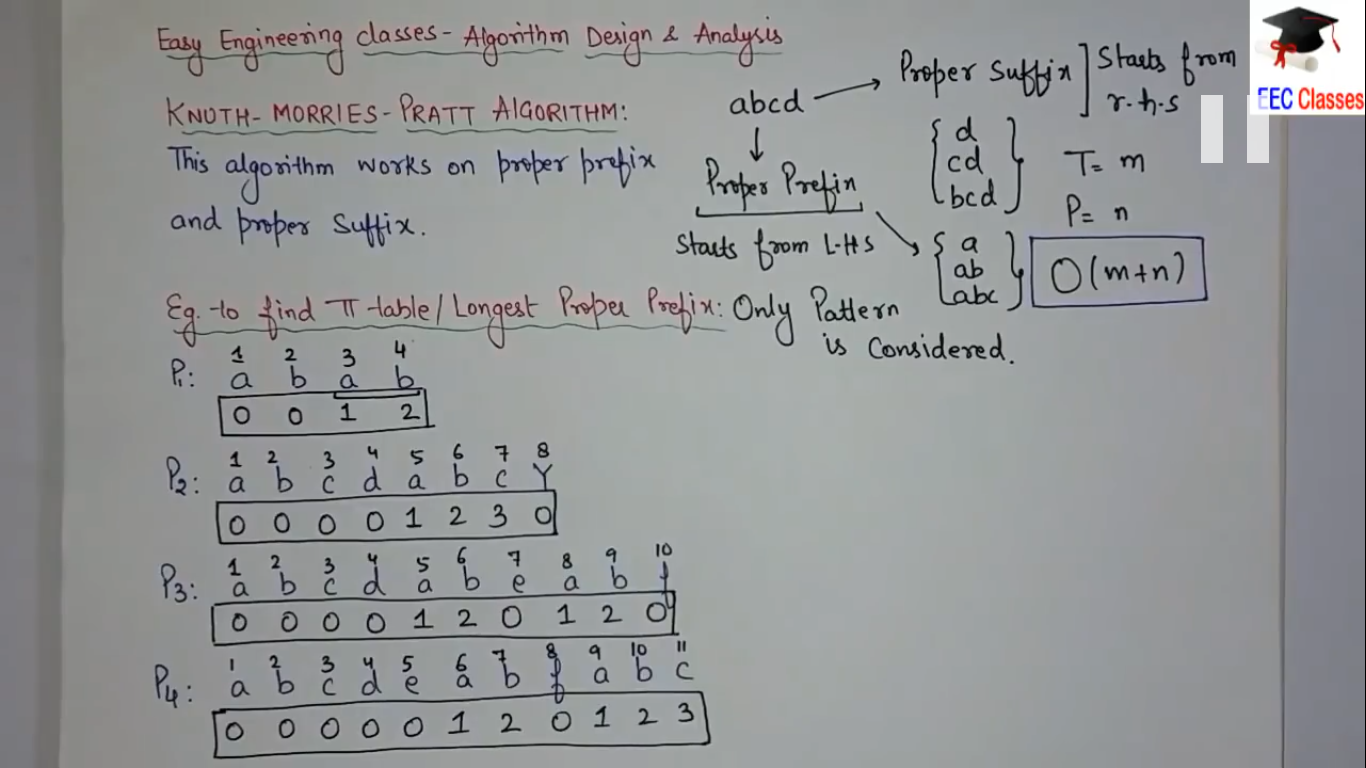 Easy Engineering classes - Algorithm Design & Analysis
KNOTH-MORRIES-PRATT ALGORITHM:
This algorithm works on proper prefix
and proper Suffix.
abcd → Proper Suffix ] Starts from
r.h.s
{ d
cd
bcd }
↓
Proper Prefix
Starts from L.H.S
{ a
ab
abc }
T= m
P= n
O(m+n)
Eg. -to find π-table/Longest Proper Prefix: Only Pattern
is Considered.
1 2 3 4
P1: a b a b
0 0 1 2
1 2 3 4 5 6 7 8
P2: a b c d a b c Y
0 0 0 0 1 2 3 0
1 2 3 4 5 6 7 8 9 10
P3: a b c d a b e a b f
0 0 0 0 1 2 0 1 2 0
1 2 3 4 5 6 7 8 9 10 11
P4: a b c d e a b f a b c
0 0 0 0 0 1 2 0 1 2 3
EEC Classes